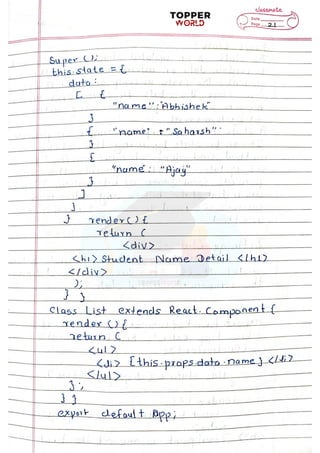 TOPPER
WORLD
classmate
Date
Page 21
Super ();
this.state = {
data :
[ {
"name" : "Abhishek"
}
{ "name" : "Saharsh"
}
{
"name" : "Ajay"
}
]
}
} render () {
return (
<div>
<h1> Student Name Detail </h1>
</div>
);
} }
class List extends React. Component {
render () {
return (
<ul>
<li> {this.props data.name} </li>
</ul>
);
} }
export default App;